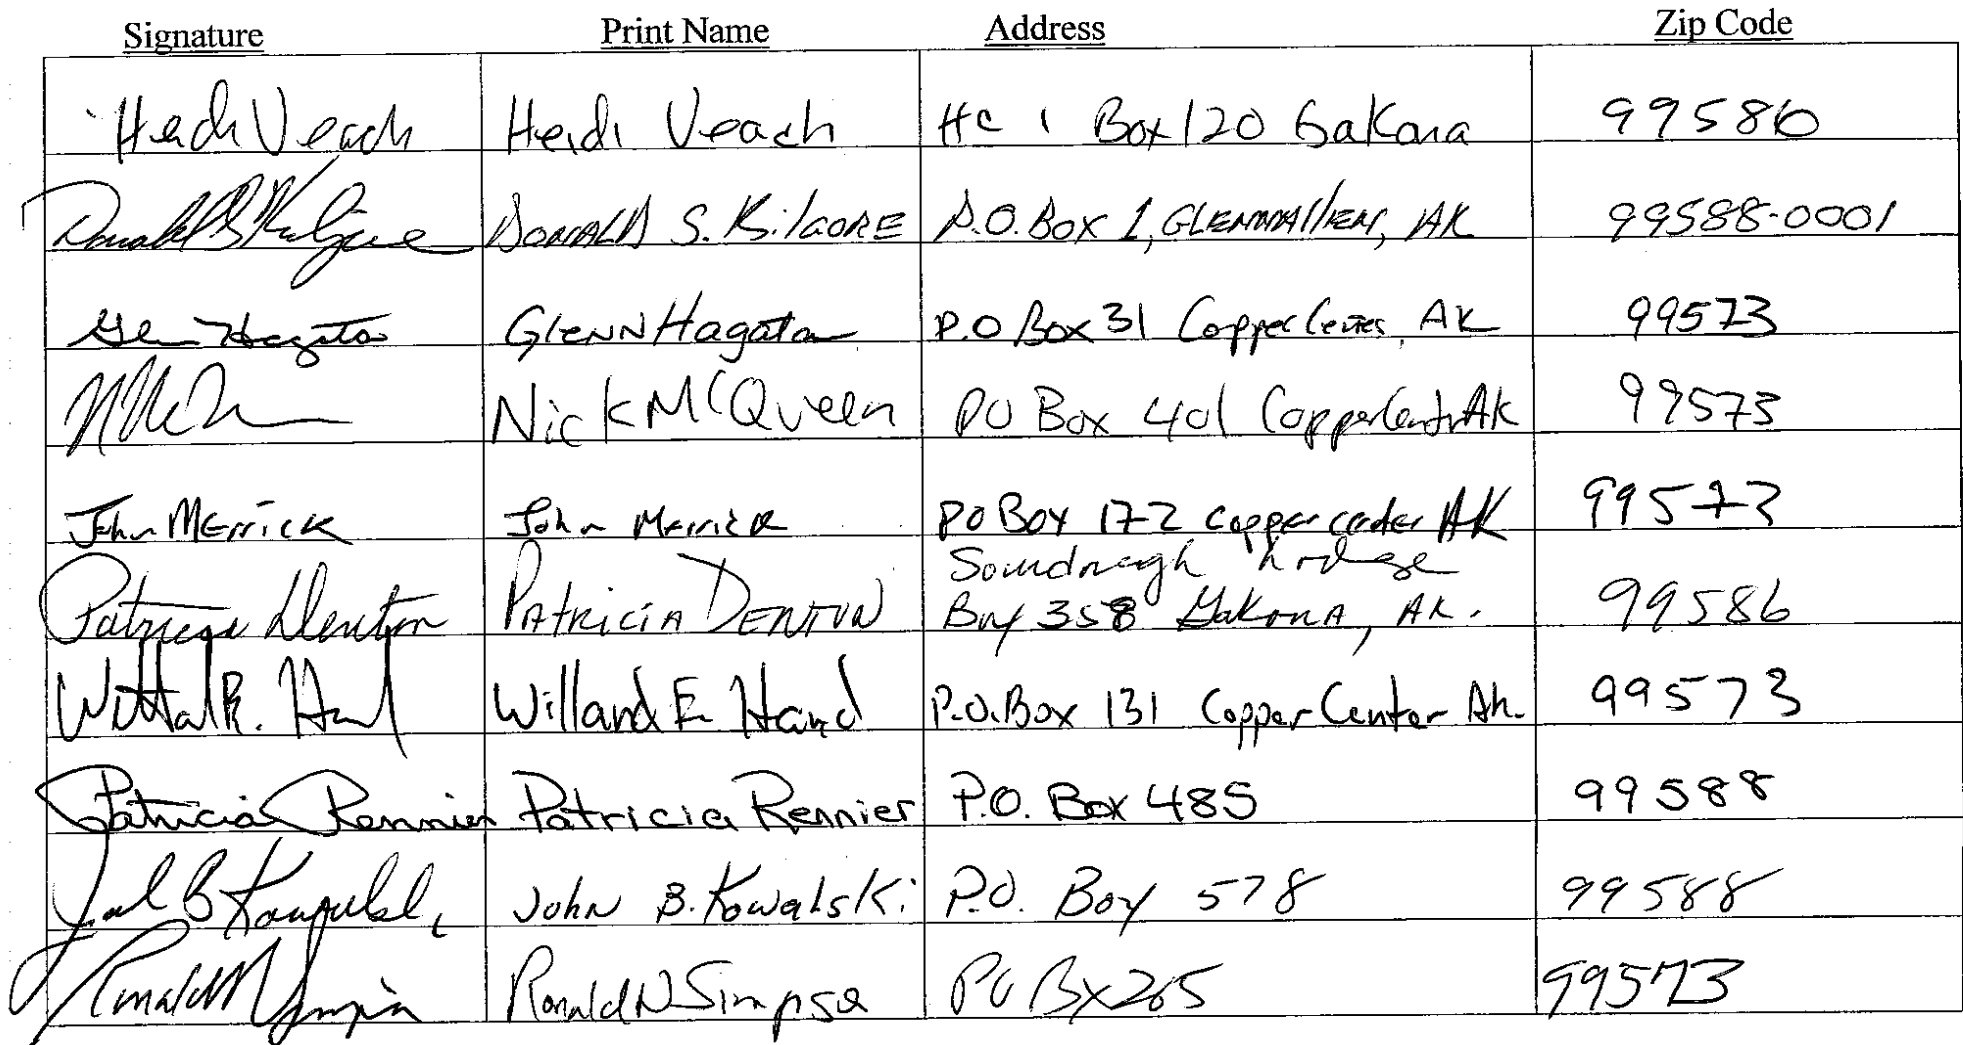 Signature Print Name Address Zip Code
Heidi Veach Heidi Veach HC 1 Box 120 Gakona 99586
Donald S Kilgore DONALD S. KilGORE P.O. Box 1, GLENNAllEN, AK 99588-0001
Glenn Hagata GlenN Hagata P.O Box 31 Copper Center, AK 99573
Nick McQueen PO Box 401 Copper Centr AK 99573
John Merrick John Merrick PO Box 172 Copper center AK 99573
Sourdough Lodge
Patricia Denton PATRICIA DENTON Box 358 GakonA, AK. 99586
Hand Willard E. Hand P.O. Box 131 Copper Center Ak. 99573
Patricia Rennier Patricia Rennier P.O. Box 485 99588
B Kowalski John B. Kowalski P.O. Box 578 99588
Ronald N Simpson Ronald N Simpson PO Bx 265 99573